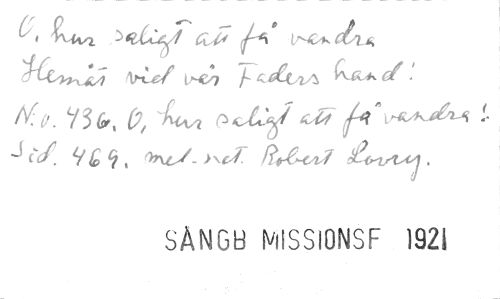 O, hur saligt att få vandra
Hemåt vid vår Faders hand!
N:o. 436. O, hur saligt att få vandra!
Sid. 469. mel.-not. Robert Lowry.
SÅNGB MISSIONSF 1921